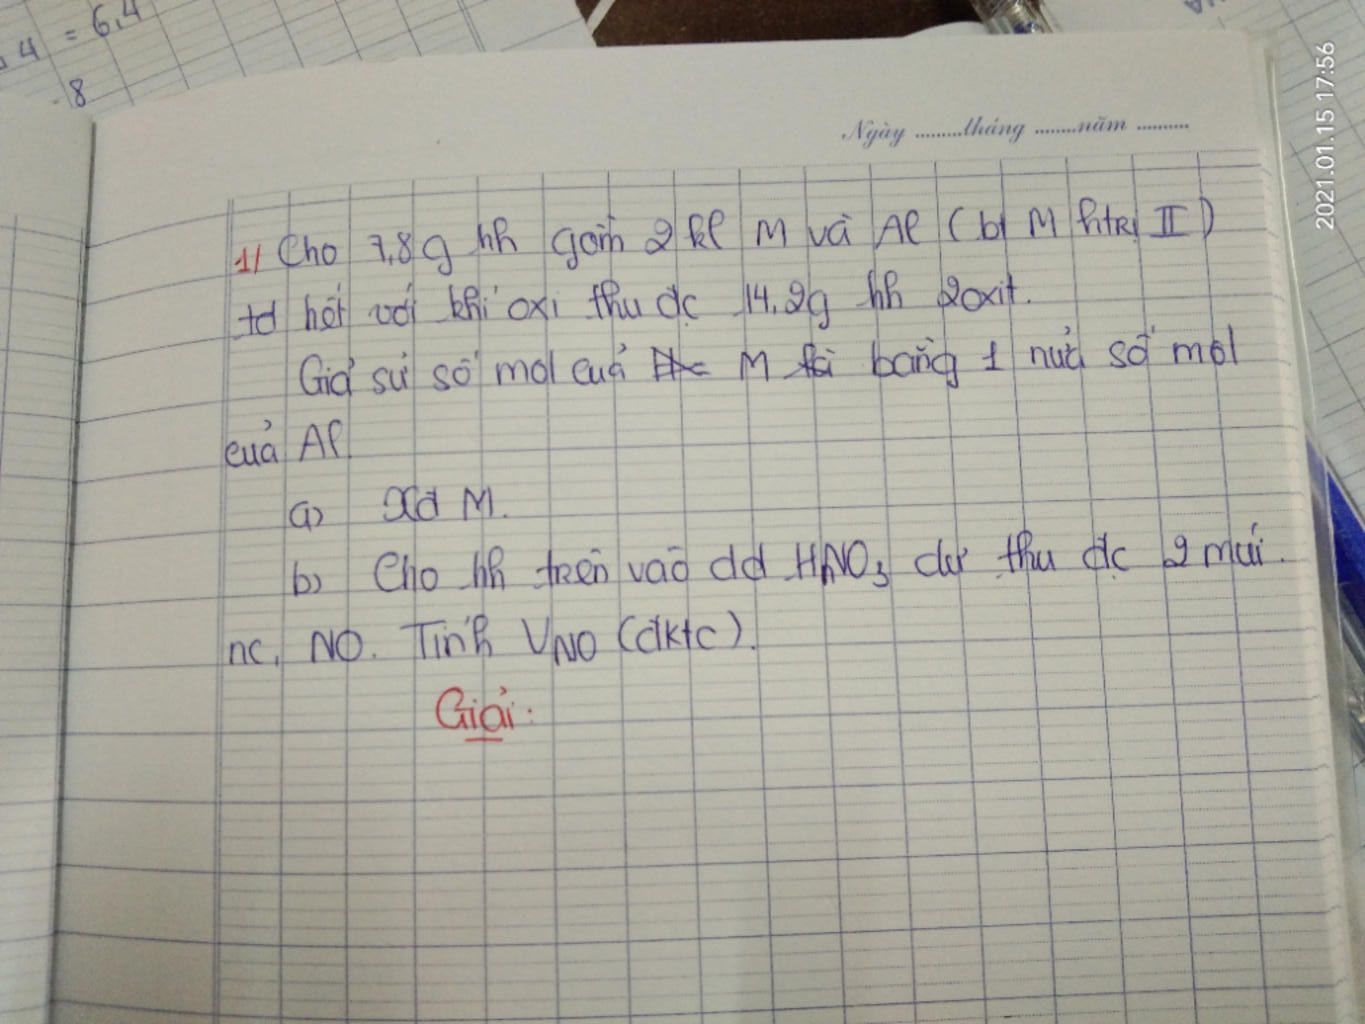 . 4 = 6,4
8
Ngày ......... tháng ........ năm ..........
1/ Cho 7,8g hh gồm 2 kl M và Al (bt M htrị II)
td hết với khí oxi thu đc 14,2g hh 2oxit.
Giả sử số mol của M bằng 1 nửa số mol
của Al
a) Xđ M.
b) Cho hh trên vào dd HNO3 dư thu đc 2 muối.
nc, NO. Tính VNO (đktc).
Giải:
2021.01.15 17:56